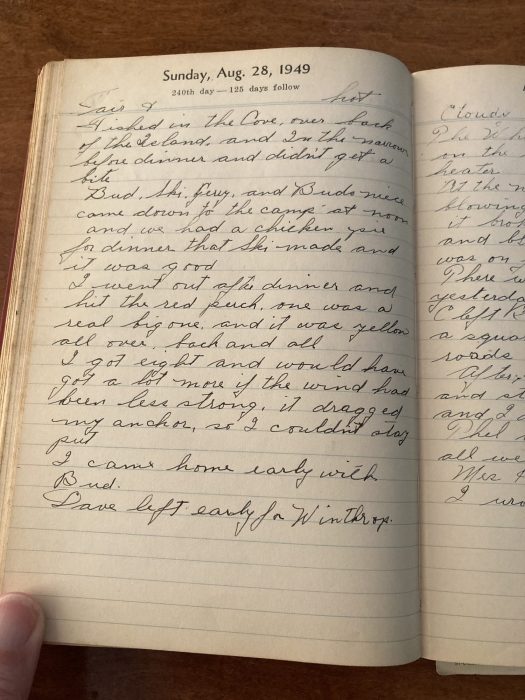 Sunday, Aug. 28, 1949
240th day—125 days follow
Fair & hot
Fished in the Cove, over back
of the Island, and In the narrows
before dinner and didn't get a
bite
Bud, Ski, Gerry, and Buds niece
came down to the camp at noon
and we had a chicken
for dinner that Ski made and
it was good
I went out afte dinner and
hit the red perch, one was a
real big one, and it was yellow
all over, back and all
I got eight and would have
got a lot more if the wind had
been less strong, it dragged
my anchor, so I couldn't stay
put
I came home early with
Bud.
Dave left early for Winthrop.
Cloudy
The
on the
heater
At the
blowing
it
and
was on
There
yesterday
C left
a
roads
After
and
and I
Phil
all we
Mrs
I